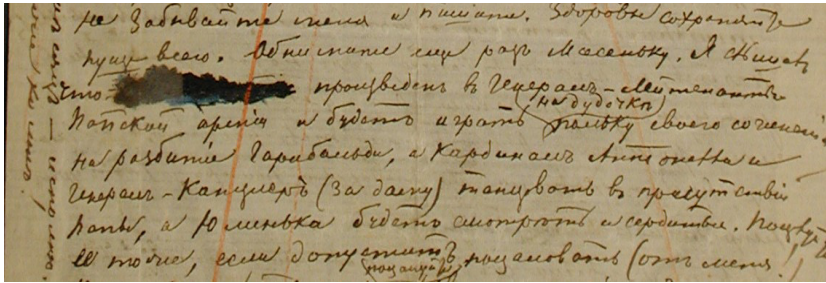 не забывайте меня и пишите. Здоровье сохраняйте
пуще всего. Обнимите еще разъ Масеньку. Я слышалъ
что произведенъ в Генералъ-Лейтенанты
на дудочкѣ
Папской арміи и будетъ играть польку своего сочиненія
на разбитіе Гарибальди, а Кардиналъ Антонелли и
Генералъ-Канцлеръ (за даму) танцовать в присутствіи
папы, а Юлинька будетъ смотрѣть и сердиться. Поцѣлуйте
ее тоже, если допуститъ поцаловать (отъ меня!)
поцалуй